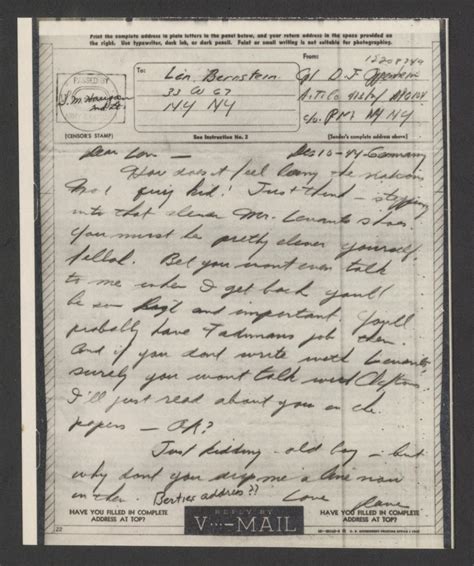 Print the complete address in plain letters in the panel below, and your return address in the space provided on
the right. Use typewriter, dark ink, or dark pencil. Faint or small writing is not suitable for photographing.
PASSED BY
(CENSOR'S STAMP)
To:
Len Bernstein
33 W 67
NY NY
See Instruction No. 2
From:
12208740
Cpl D. J.
NY NY
(Sender's complete address above)
Dear Len —
Dec 10 - 44 Germany
How does it feel being the nation's
No 1 quiz kid! Just think — stepping
into that clever Mr. Levants shoes.
You must be pretty clever yourself,
fellah. Bet you wont even talk
to me when I get back you'll
be so and important. You'll
probably have Fadimans job then.
And if you dont write with Levante
surely you wont talk with Cliftons.
I'll just read about you in the
papers — OK?
Just kidding — old boy — but
why dont you drop me a line now
an then. Berties address??
Love
HAVE YOU FILLED IN COMPLETE
ADDRESS AT TOP?
REPLY BY
V···—MAIL
HAVE YOU FILLED IN COMPLETE
ADDRESS AT TOP?
22